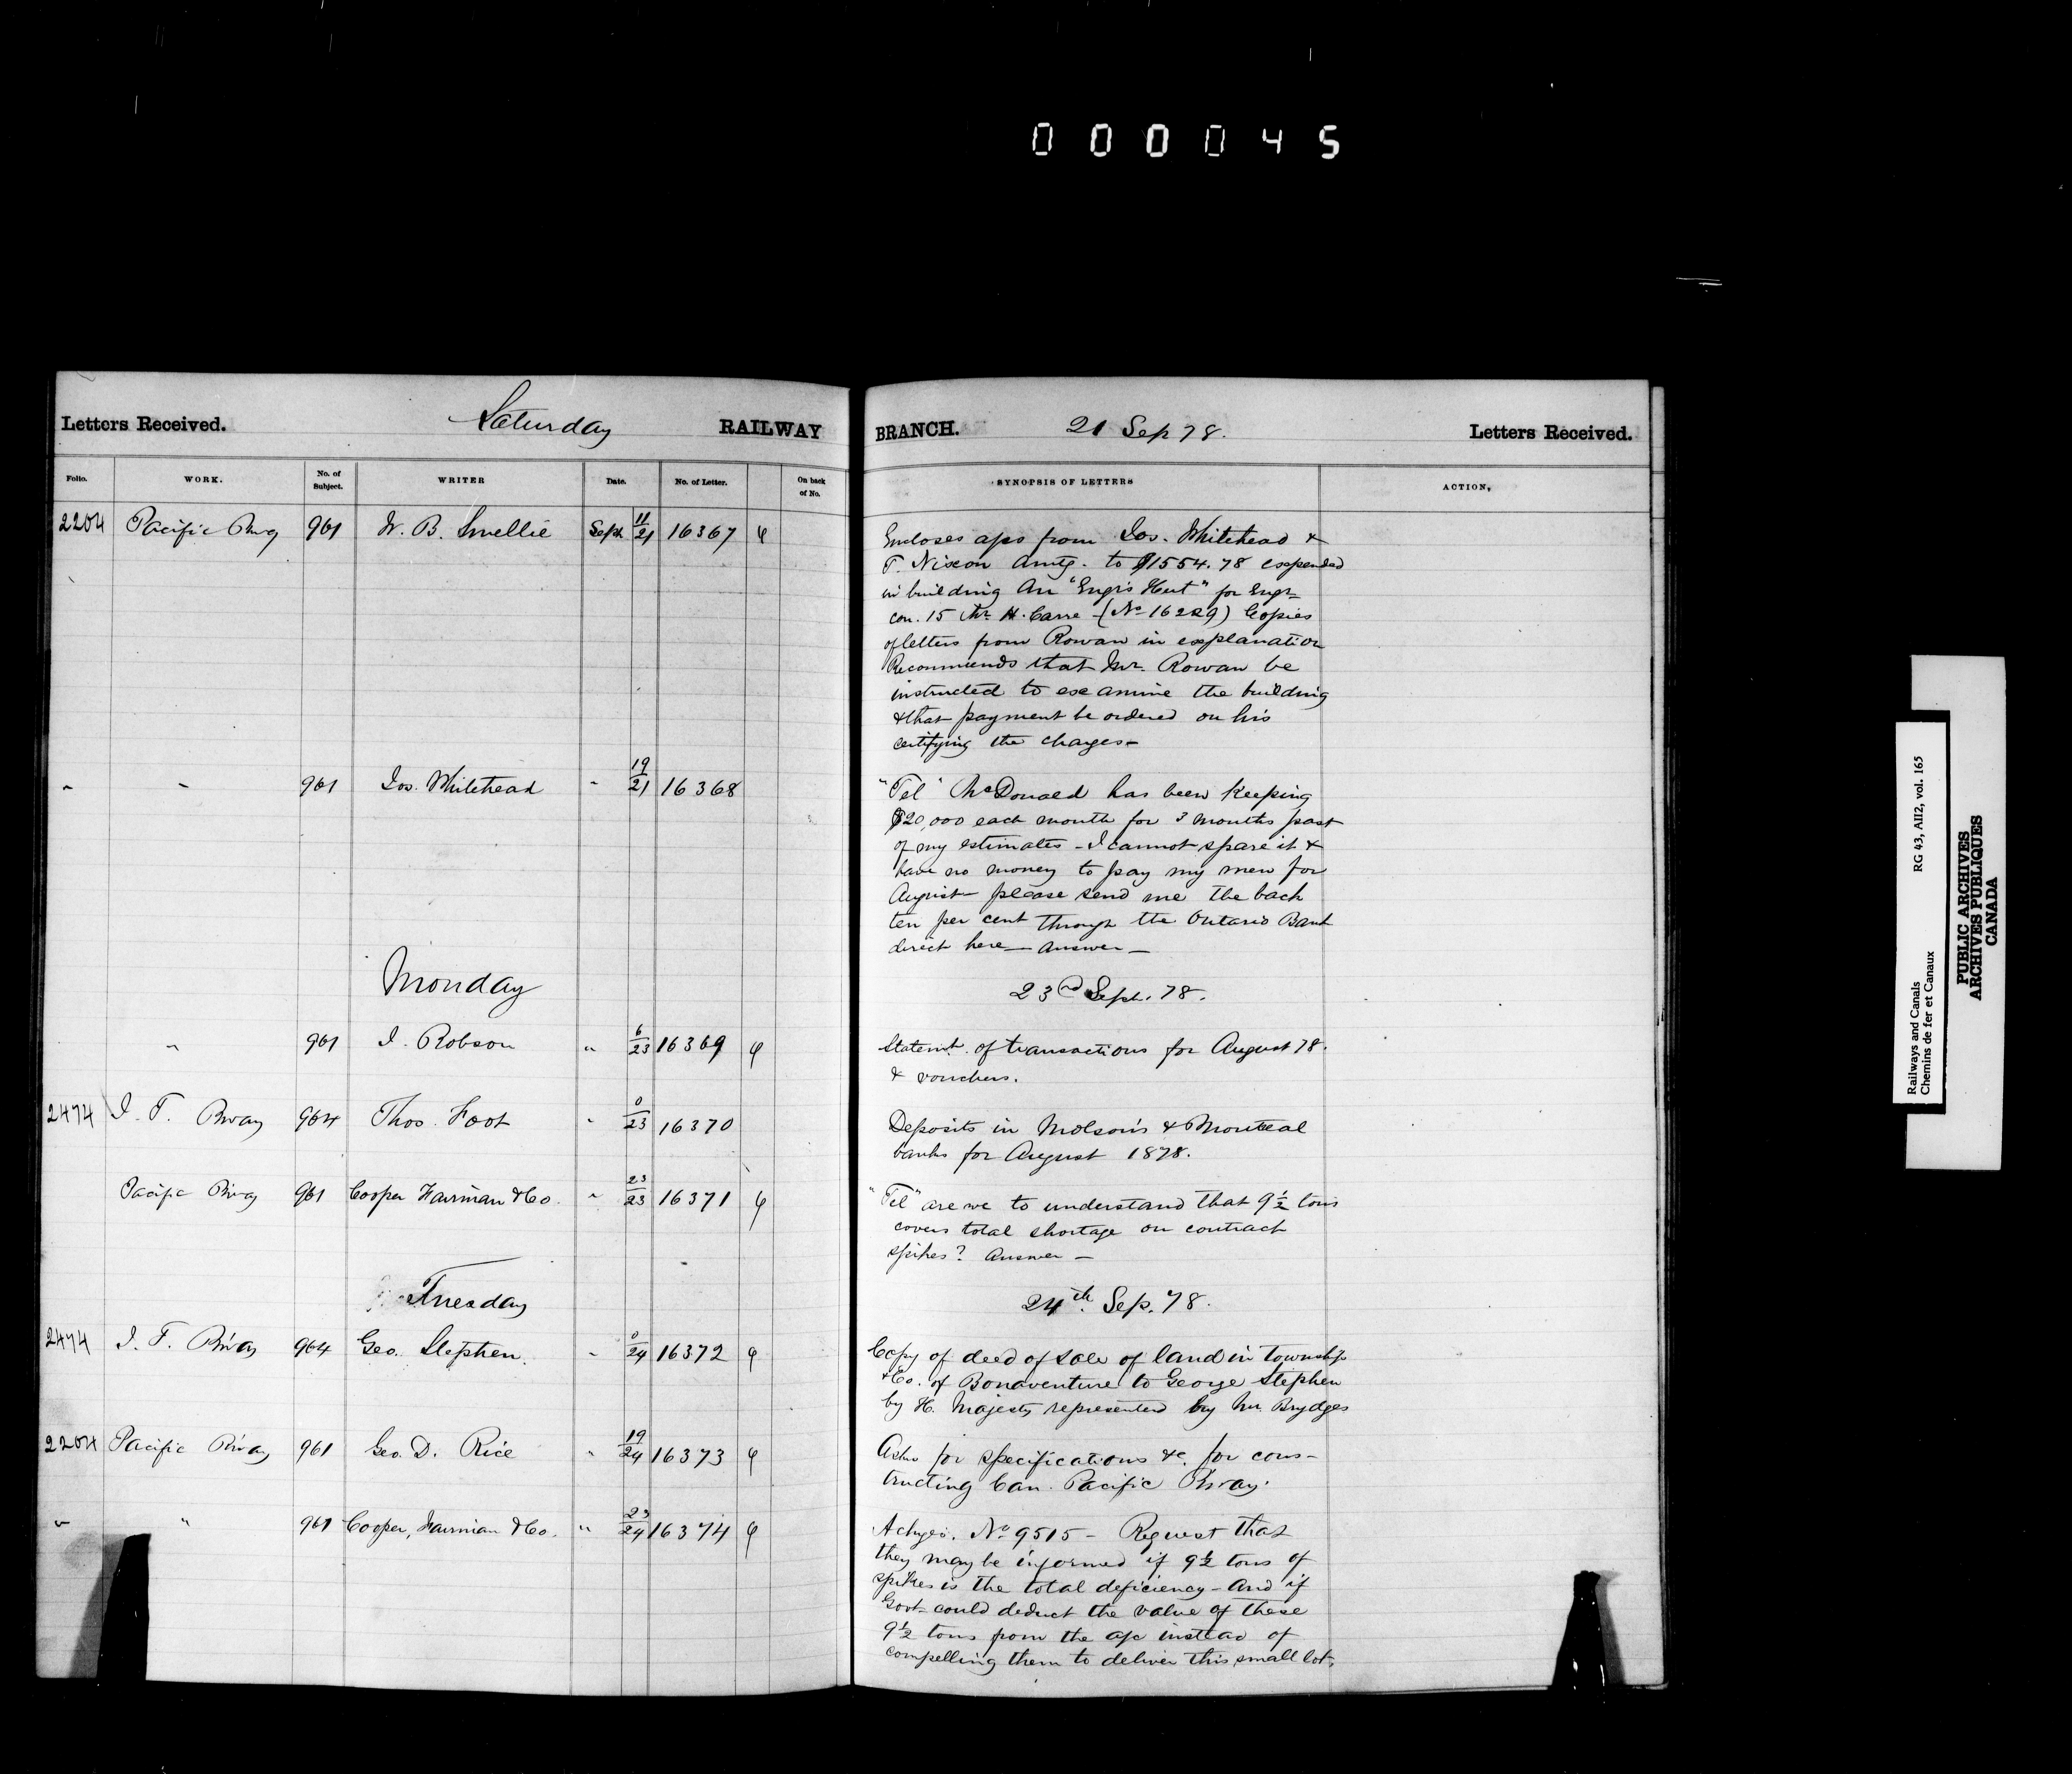 000045
Letters Received. Saturday RAILWAY BRANCH. 21 Sep 78. Letters Received.
Folio. WORK. No. of Subject. WRITER Date. No. of Letter. On back of No. SYNOPSIS OF LETTERS ACTION.
2204 Pacific Rwy 961 W. B. Smellie Sept 11/21 16367 φ
Encloses a/cs from Jos. Whitehead &
T. Nixon amtg. to $1554.78 expended
in building an "Engr's Hut" for Engr
con. 15 Mr. H. Carre - (No 16229) Copies
of letters from Rowan in explanation
Recommends that Mr. Rowan be
instructed to examine the building
& that payment be ordered on his
certifying the charges -
" " 961 Jos. Whitehead " 19/21 16368
"Tel" McDonald has been keeping
$20,000 each month for 3 months past
of my estimates - I cannot spare it &
have no money to pay my men for
August please send me the back
ten per cent through the Ontario Bank
direct here - answer -
Monday 23rd Sept. 78.
" 961 J. Robson " 6/23 16369 φ
Statemt. of transactions for August 78.
& vouchers.
2474 I. T. Rway 964 Thos. Foot " 0/23 16370
Deposits in Molson's & Montreal
banks for August 1878.
Pacific Rway 961 Cooper Fairman & Co. " 23/23 16371 φ
"Tel" are we to understand that 9½ tons
covers total shortage on contract
spikes? Answer -
Tuesday 24th. Sep. 78.
2474 I. T. R'way 964 Geo. Stephen. " 0/24 16372 φ
Copy of deed of sale of land in township
& Co. of Bonaventure to George Stephen
by H. Majesty represented by Mr. Brydges
2204 Pacific R'way 961 Geo. D. Rice " 19/24 16373 φ
Asks for specifications &c. for cons-
tructing Can. Pacific R'way.
" " 961 Cooper, Fairman & Co. " 23/24 16374 φ
Ackges. No 9515 - Request that
they may be informed if 9½ tons of
spikes is the total deficiency - And if
Govt could deduct the value of these
9½ tons from the a/c instead of
compelling them to deliver this small lot.
Railways and Canals RG 43, A112, vol. 165
Chemins de fer et Canaux
PUBLIC ARCHIVES
ARCHIVES PUBLIQUES
CANADA